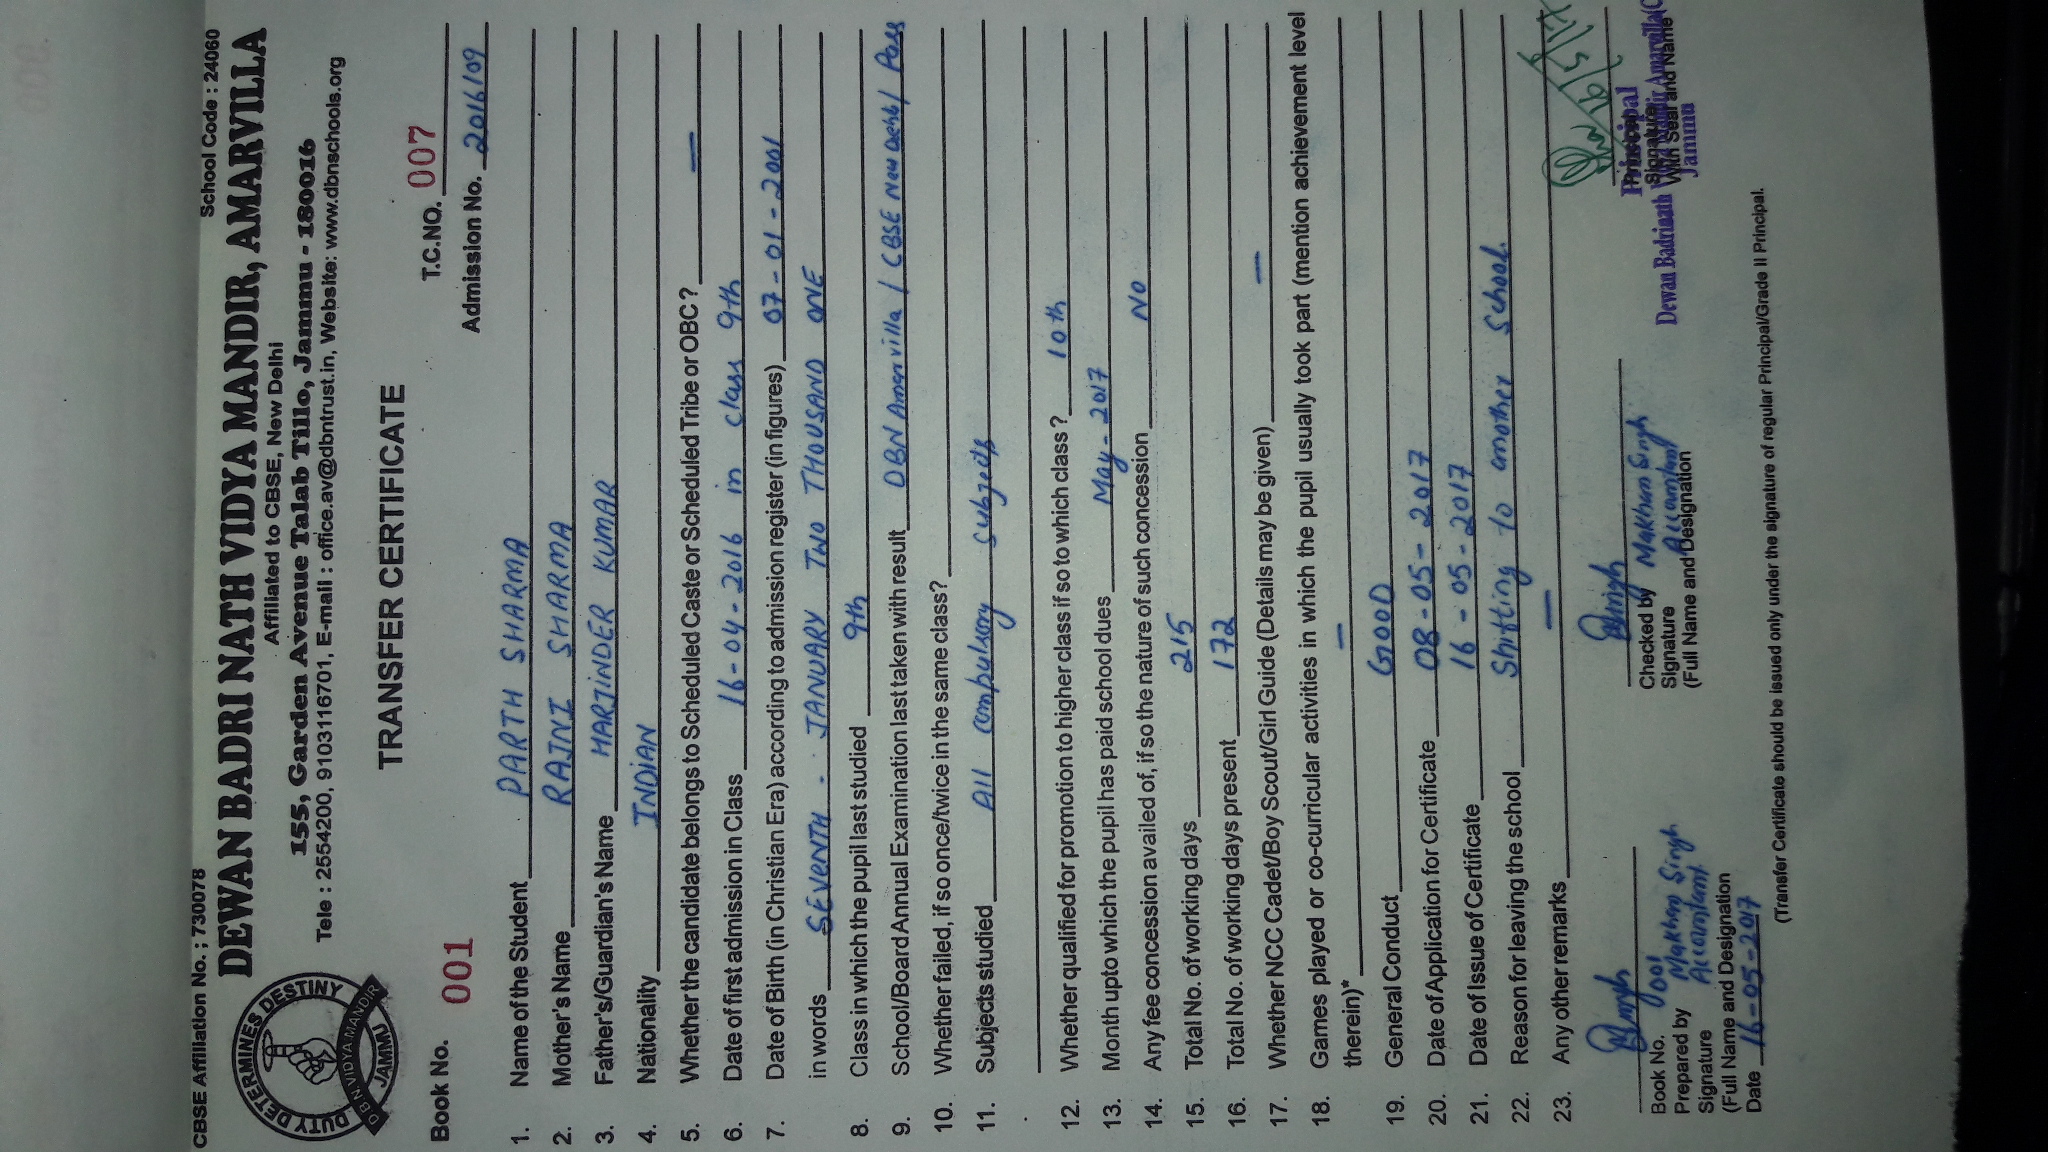 CBSE Affiliation No. : 730078 School Code : 24060
DEWAN BADRI NATH VIDYA MANDIR, AMARVILLA
Affiliated to CBSE, New Delhi
155, Garden Avenue Talab Tillo, Jammu - 180016
Tele : 2554200, 9103116701, E-mail : office.av@dbntrust.in, Website: www.dbnschools.org
DUTY DETERMINES DESTINY
DBN VIDYA MANDIR
JAMMU
TRANSFER CERTIFICATE
Book No. 001 T.C.NO. 007
Admission No. 2016/09
1. Name of the Student PARTH SHARMA
2. Mother's Name RAJNI SHARMA
3. Father's/Guardian's Name HARJINDER KUMAR
4. Nationality INDIAN
5. Whether the candidate belongs to Scheduled Caste or Scheduled Tribe or OBC? —
6. Date of first admission in Class 16-04-2016 in class 9th
7. Date of Birth (in Christian Era) according to admission register (in figures) 07-01-2001
in words SEVENTH - JANUARY TWO THOUSAND ONE
8. Class in which the pupil last studied 9th
9. School/Board Annual Examination last taken with result DBN Amarvilla / CBSE New Delhi / Pass
10. Whether failed, if so once/twice in the same class?
11. Subjects studied All compulsory subjects
12. Whether qualified for promotion to higher class if so to which class? 10th
13. Month upto which the pupil has paid school dues May-2017
14. Any fee concession availed of, if so the nature of such concession No
15. Total No. of working days 215
16. Total No. of working days present 172
17. Whether NCC Cadet/Boy Scout/Girl Guide (Details may be given) —
18. Games played or co-curricular activities in which the pupil usually took part (mention achievement level
therein)* —
19. General Conduct GOOD
20. Date of Application for Certificate 08-05-2017
21. Date of Issue of Certificate 16-05-2017
22. Reason for leaving the school Shifting to another School.
23. Any other remarks —
Book No. 001
Prepared by Makhan Singh
Signature Accountant
(Full Name and Designation
Date 16-05-2017
Checked by Makhan Singh
Signature Accountant
(Full Name and Designation
Principal
Signature
With Seal and Name
Principal
Dewan Badrinath Vidya Mandir Amarvilla
Jammu
(Transfer Certificate should be issued only under the signature of regular Principal/Grade II Principal.